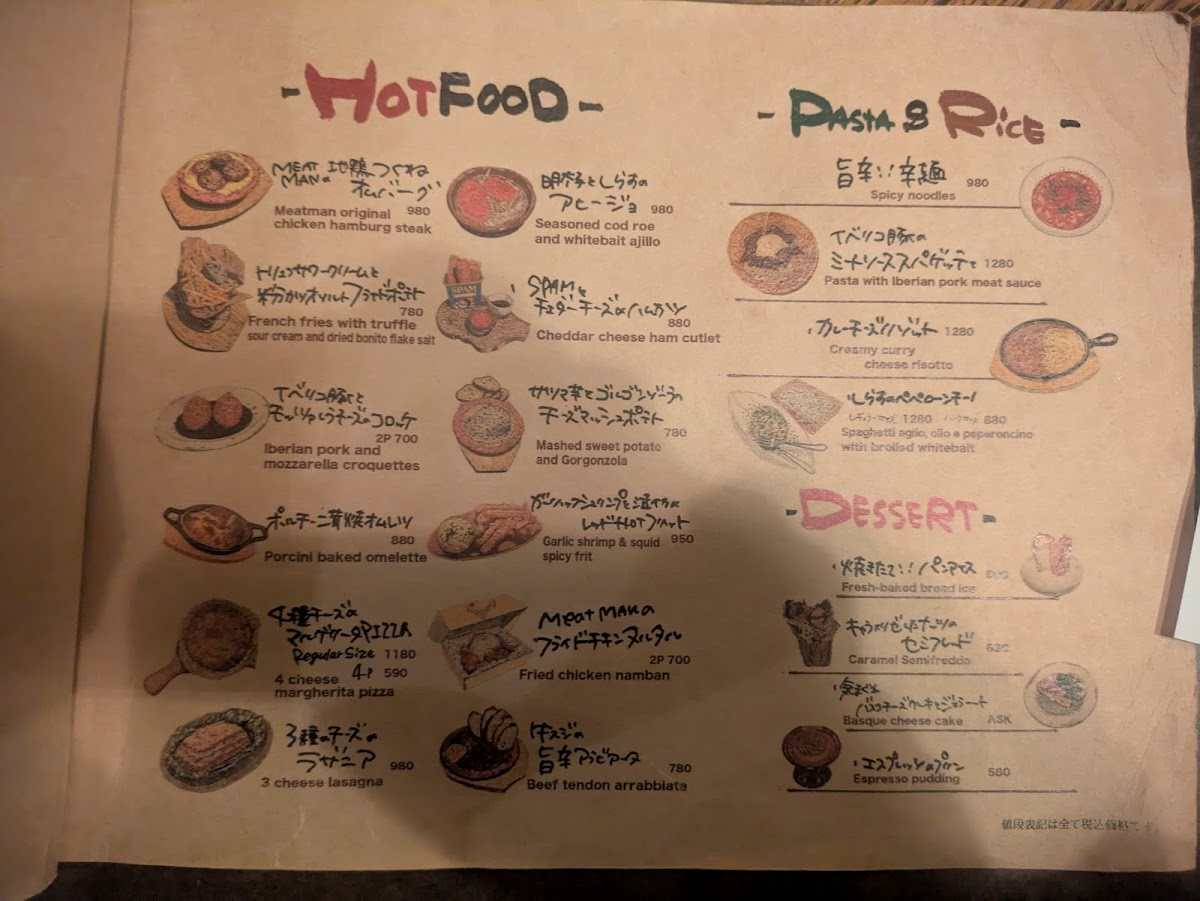 -HOTFOOD-
MEAT MANの 地鶏つくね
オムバーグ
980
Meatman original
chicken hamburg steak
明太子としらすの
アヒージョ 980
Seasoned cod roe
and whitebait ajillo
トリュフサワークリームと
粉かつオソルトフライドポテト
780
French fries with truffle
sour cream and dried bonito flake salt
SPAMと
チェダーチーズのハムカツ
880
Cheddar cheese ham cutlet
SPAM
イベリコ豚と
モッツァレラチーズのコロッケ
2P 700
Iberian pork and
mozzarella croquettes
サツマ芋とゴルゴンゾーラの
チーズマッシュポテト
780
Mashed sweet potato
and Gorgonzola
ポルチーニ茸焼オムレツ
880
Porcini baked omelette
ガーリックシュリンプと
レッドHOTフリット
950
Garlic shrimp & squid
spicy frit
4種チーズの
マルゲリータPIZZA
Regular Size 1180
4P 590
4 cheese
margherita pizza
MEAT MANの
フライドチキン
2P 700
Fried chicken namban
3種のチーズの
ラザニア 980
3 cheese lasagna
牛スジの
旨辛アラビアータ
780
Beef tendon arrabbiata
-PASTA & RICE-
旨辛!!辛麺 980
Spicy noodles
イベリコ豚の
ミートソーススパゲッティ 1280
Pasta with Iberian pork meat sauce
カレーチーズリゾット 1280
Creamy curry
cheese risotto
しらすのペペロンチーノ
レギュラーサイズ 1280 ハーフサイズ 880
Spaghetti aglio, olio e peperoncino
with broiled whitebait
-DESSERT-
焼きたて!!パンアイス
Fresh-baked bread ice
キャラメリゼしたナッツの
セミフレッド
Caramel Semifreddo
バスクチーズケーキとジェラート
Basque cheese cake ASK
エスプレッソのプリン
Espresso pudding 580
値段表記は全て税込価格です。